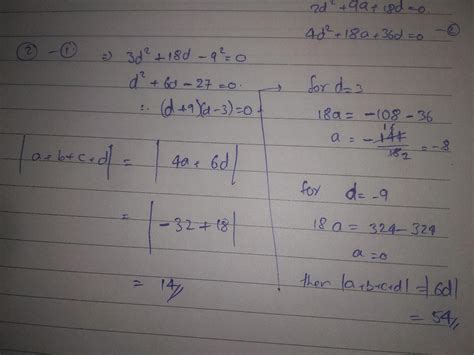 2d² + 9a + 18d = 0
4d² + 18a + 36d = 0 — ②
② - ① ⇒ 3d² + 18d - 9² = 0
d² + 6d - 27 = 0.
∴ (d+9)(d-3) = 0
|a+b+c+d| = |4a + 6d|
= |-32 + 18|
= 14//
for d = 3
18a = -108 - 36
a = -144/18 = -8
for d = -9
18a = 324 - 324
a = 0
then |a+b+c+d| = |6d|
= 54//